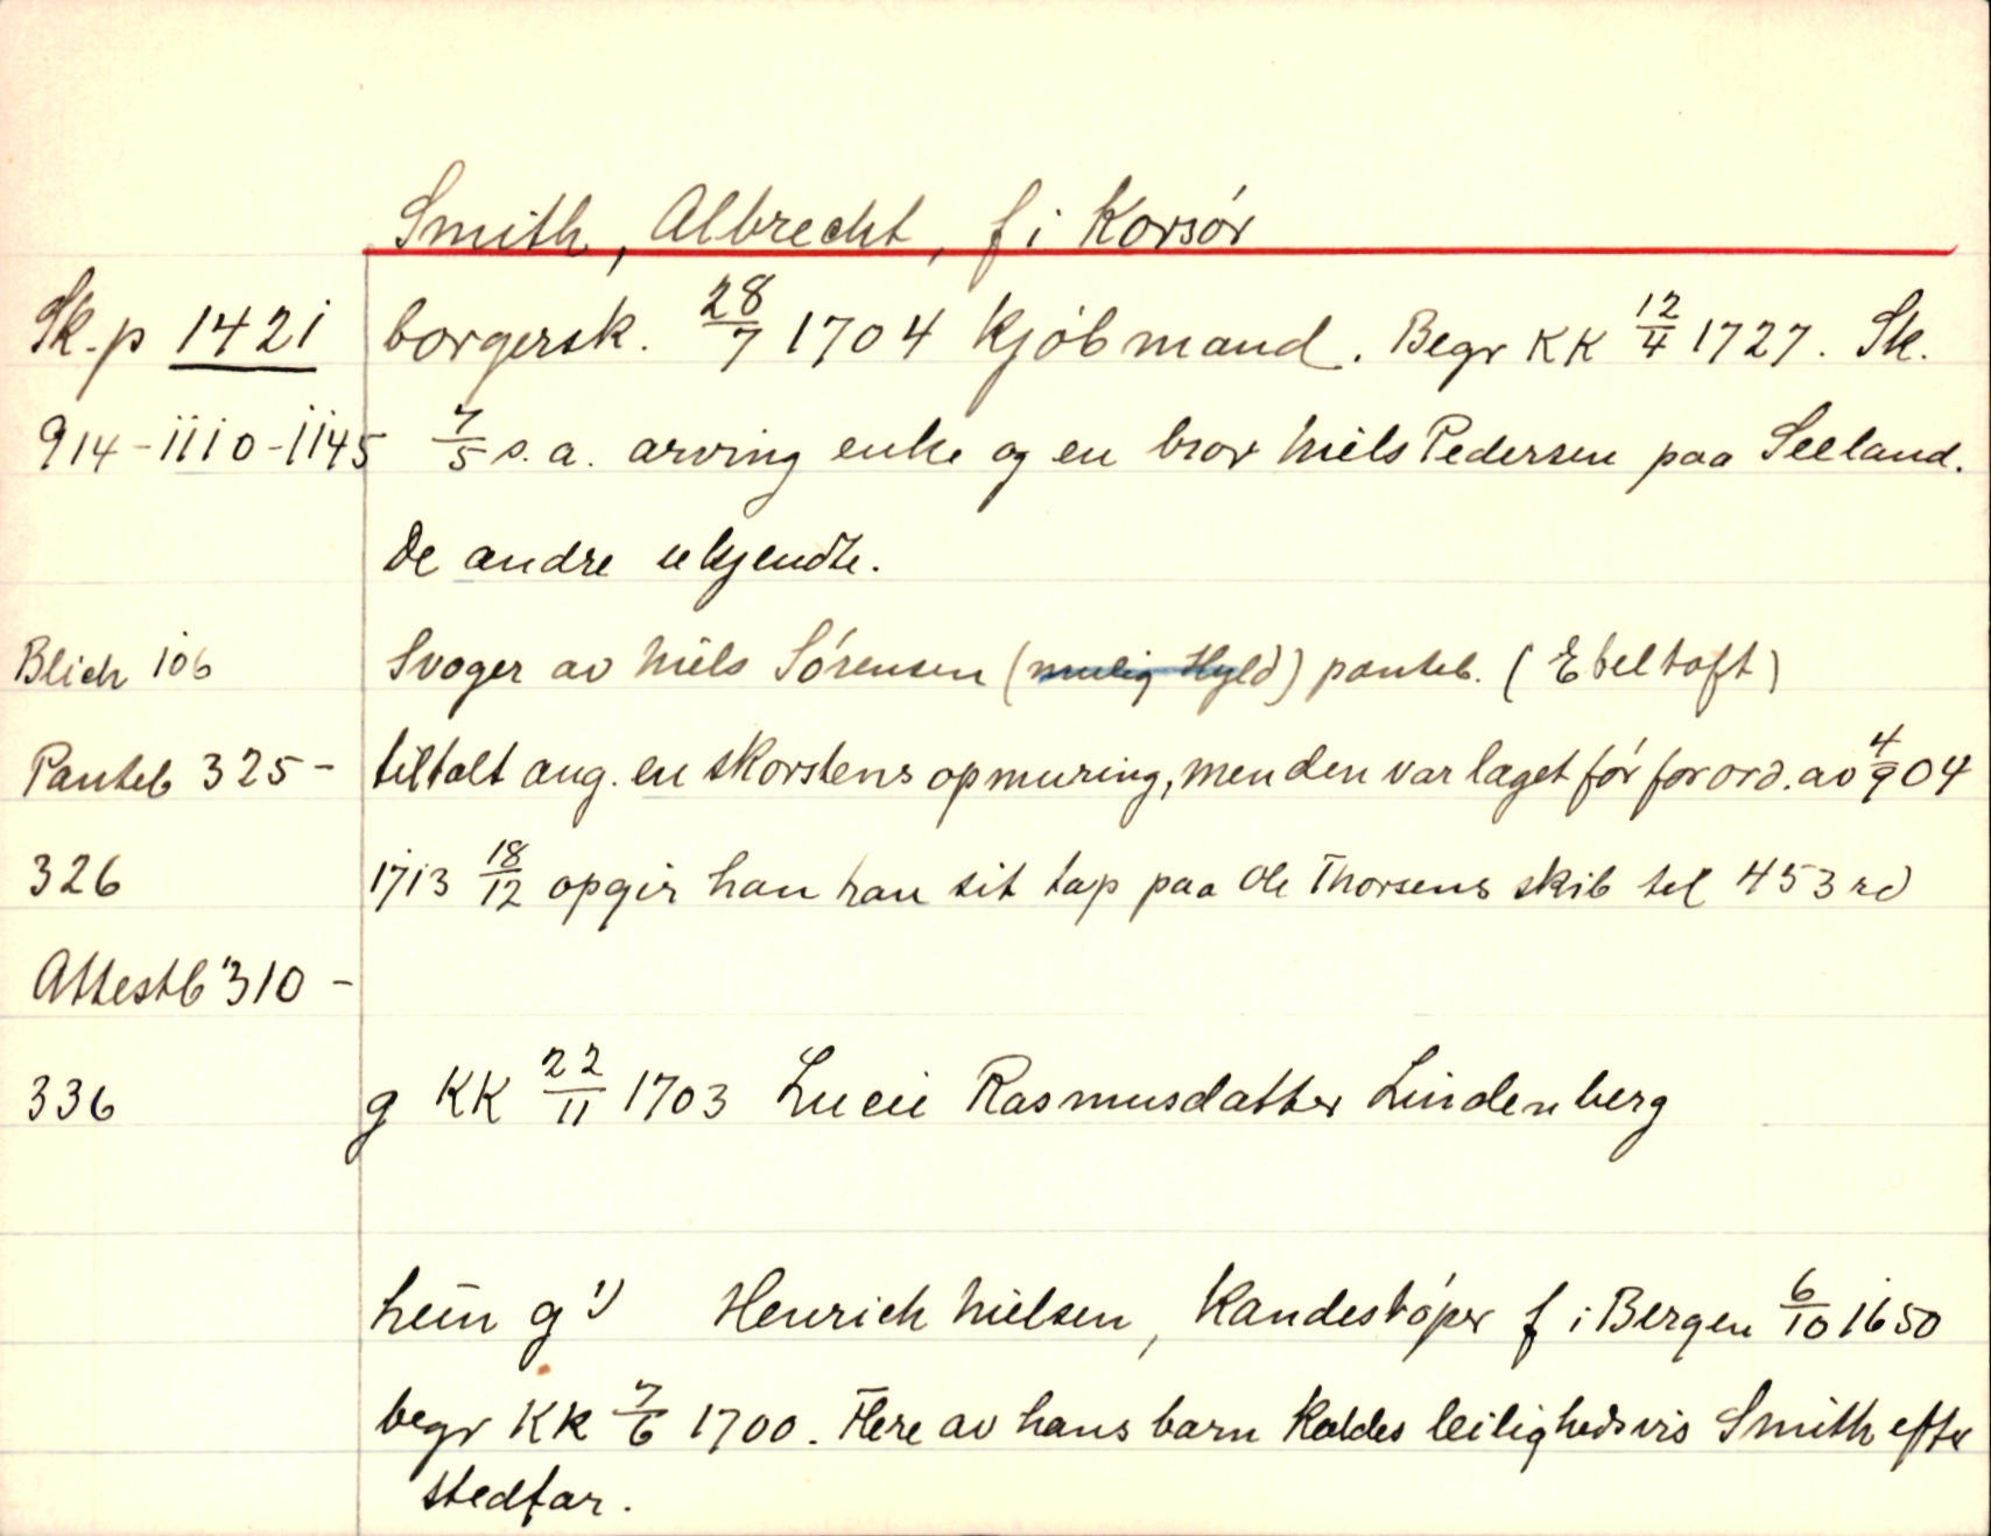 Smith, Albrecht, f i Korsör
Sk. p 1421 borgersk. 28/7 1704 Kjöbmand. Begr KK 12/4 1727. Sk.
914-1110-1145 7/5 s. a. arving enke og en bror Niels Pedersen paa Seeland.
De andre ukjendte.
Blich 106 Svoger av Niels Sörensen (mulig Hyld) panteb. (Ebeltoft)
Panteb 325- tiltalt ang. en skorstens opmuring, men den var laget för forord. av 4/9 04
326 1713 18/12 opgir han han sit tap paa Ole Thorsens skib til 453 rd
Attestb 310 -
336 g KK 22/11 1703 Lucie Rasmusdatter Lindenberg
hun g 1) Henrich Nielsen, Kandestöper f i Bergen 6/10 1650
begr KK 7/6 1700. Flere av hans barn kaldes leilighedsvis Smith efter
stedfar.